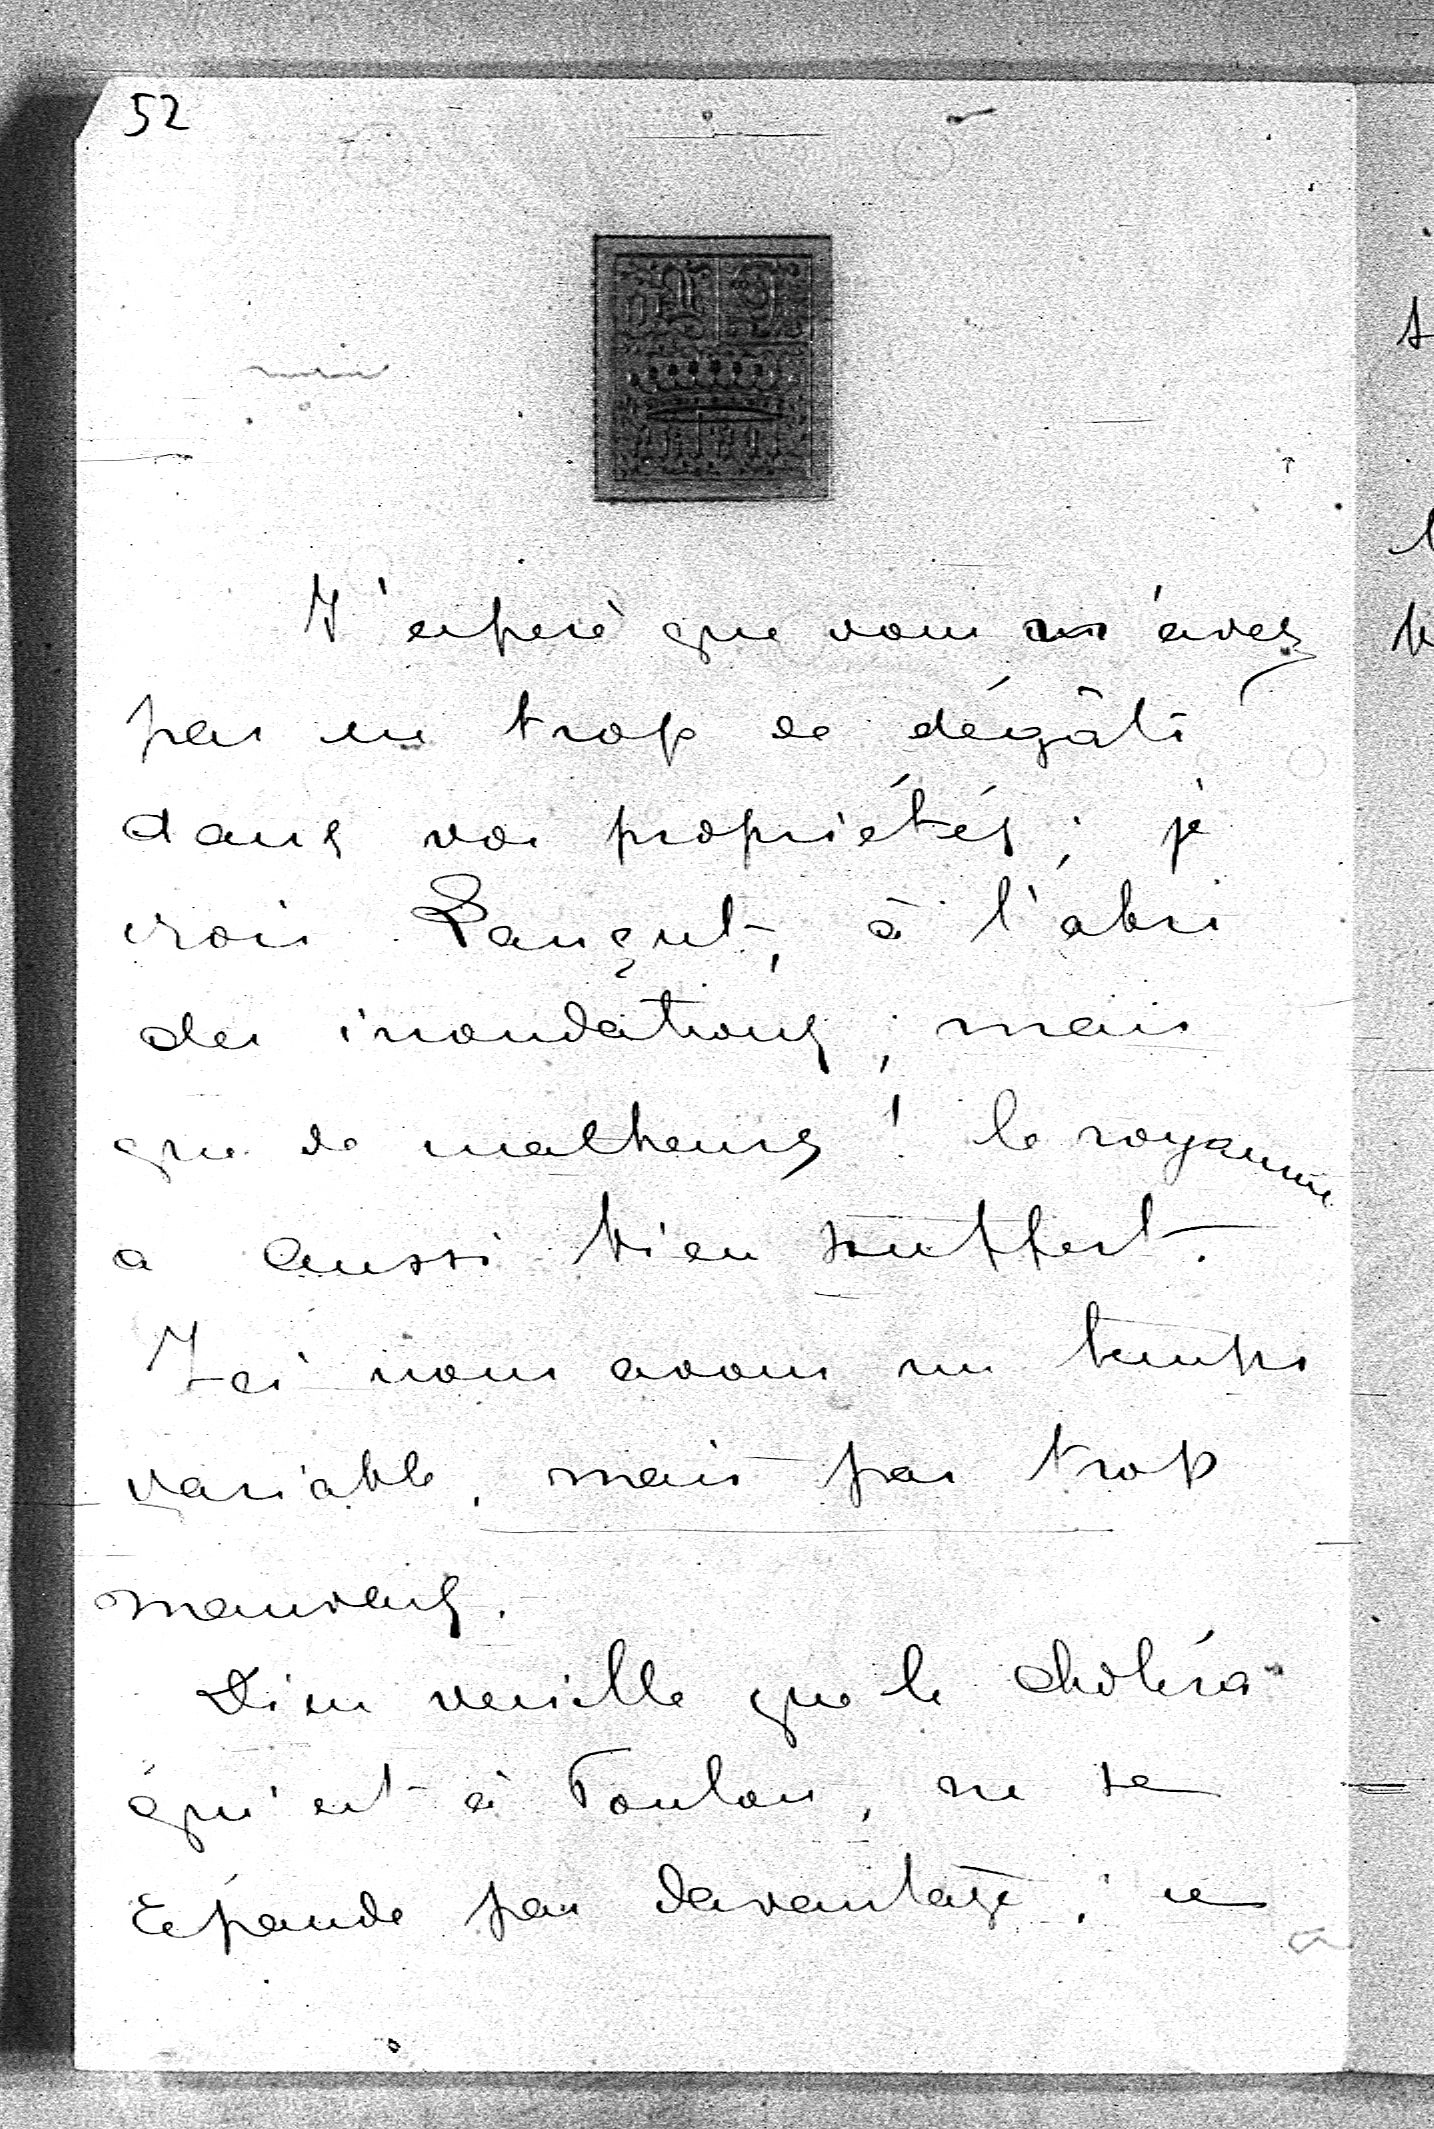 52
J'espère que vous n'avez
pas eu trop de dégâts
dans vos propriétés ; je
crois Lançut, à l'abri
des inondations ; mais
que de malheurs ! le royaume
a aussi bien souffert.
Ici nous avons un temps
variable, mais pas trop
mauvais.
Dieu veuille que le choléra
qui est à Toulon, ne se
répande pas davantage ; ce